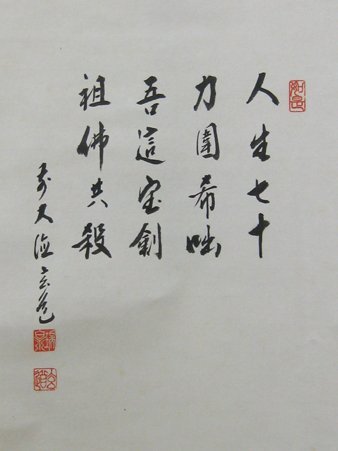 人生七十
力圍希咄
吾這宝剣
祖佛共殺